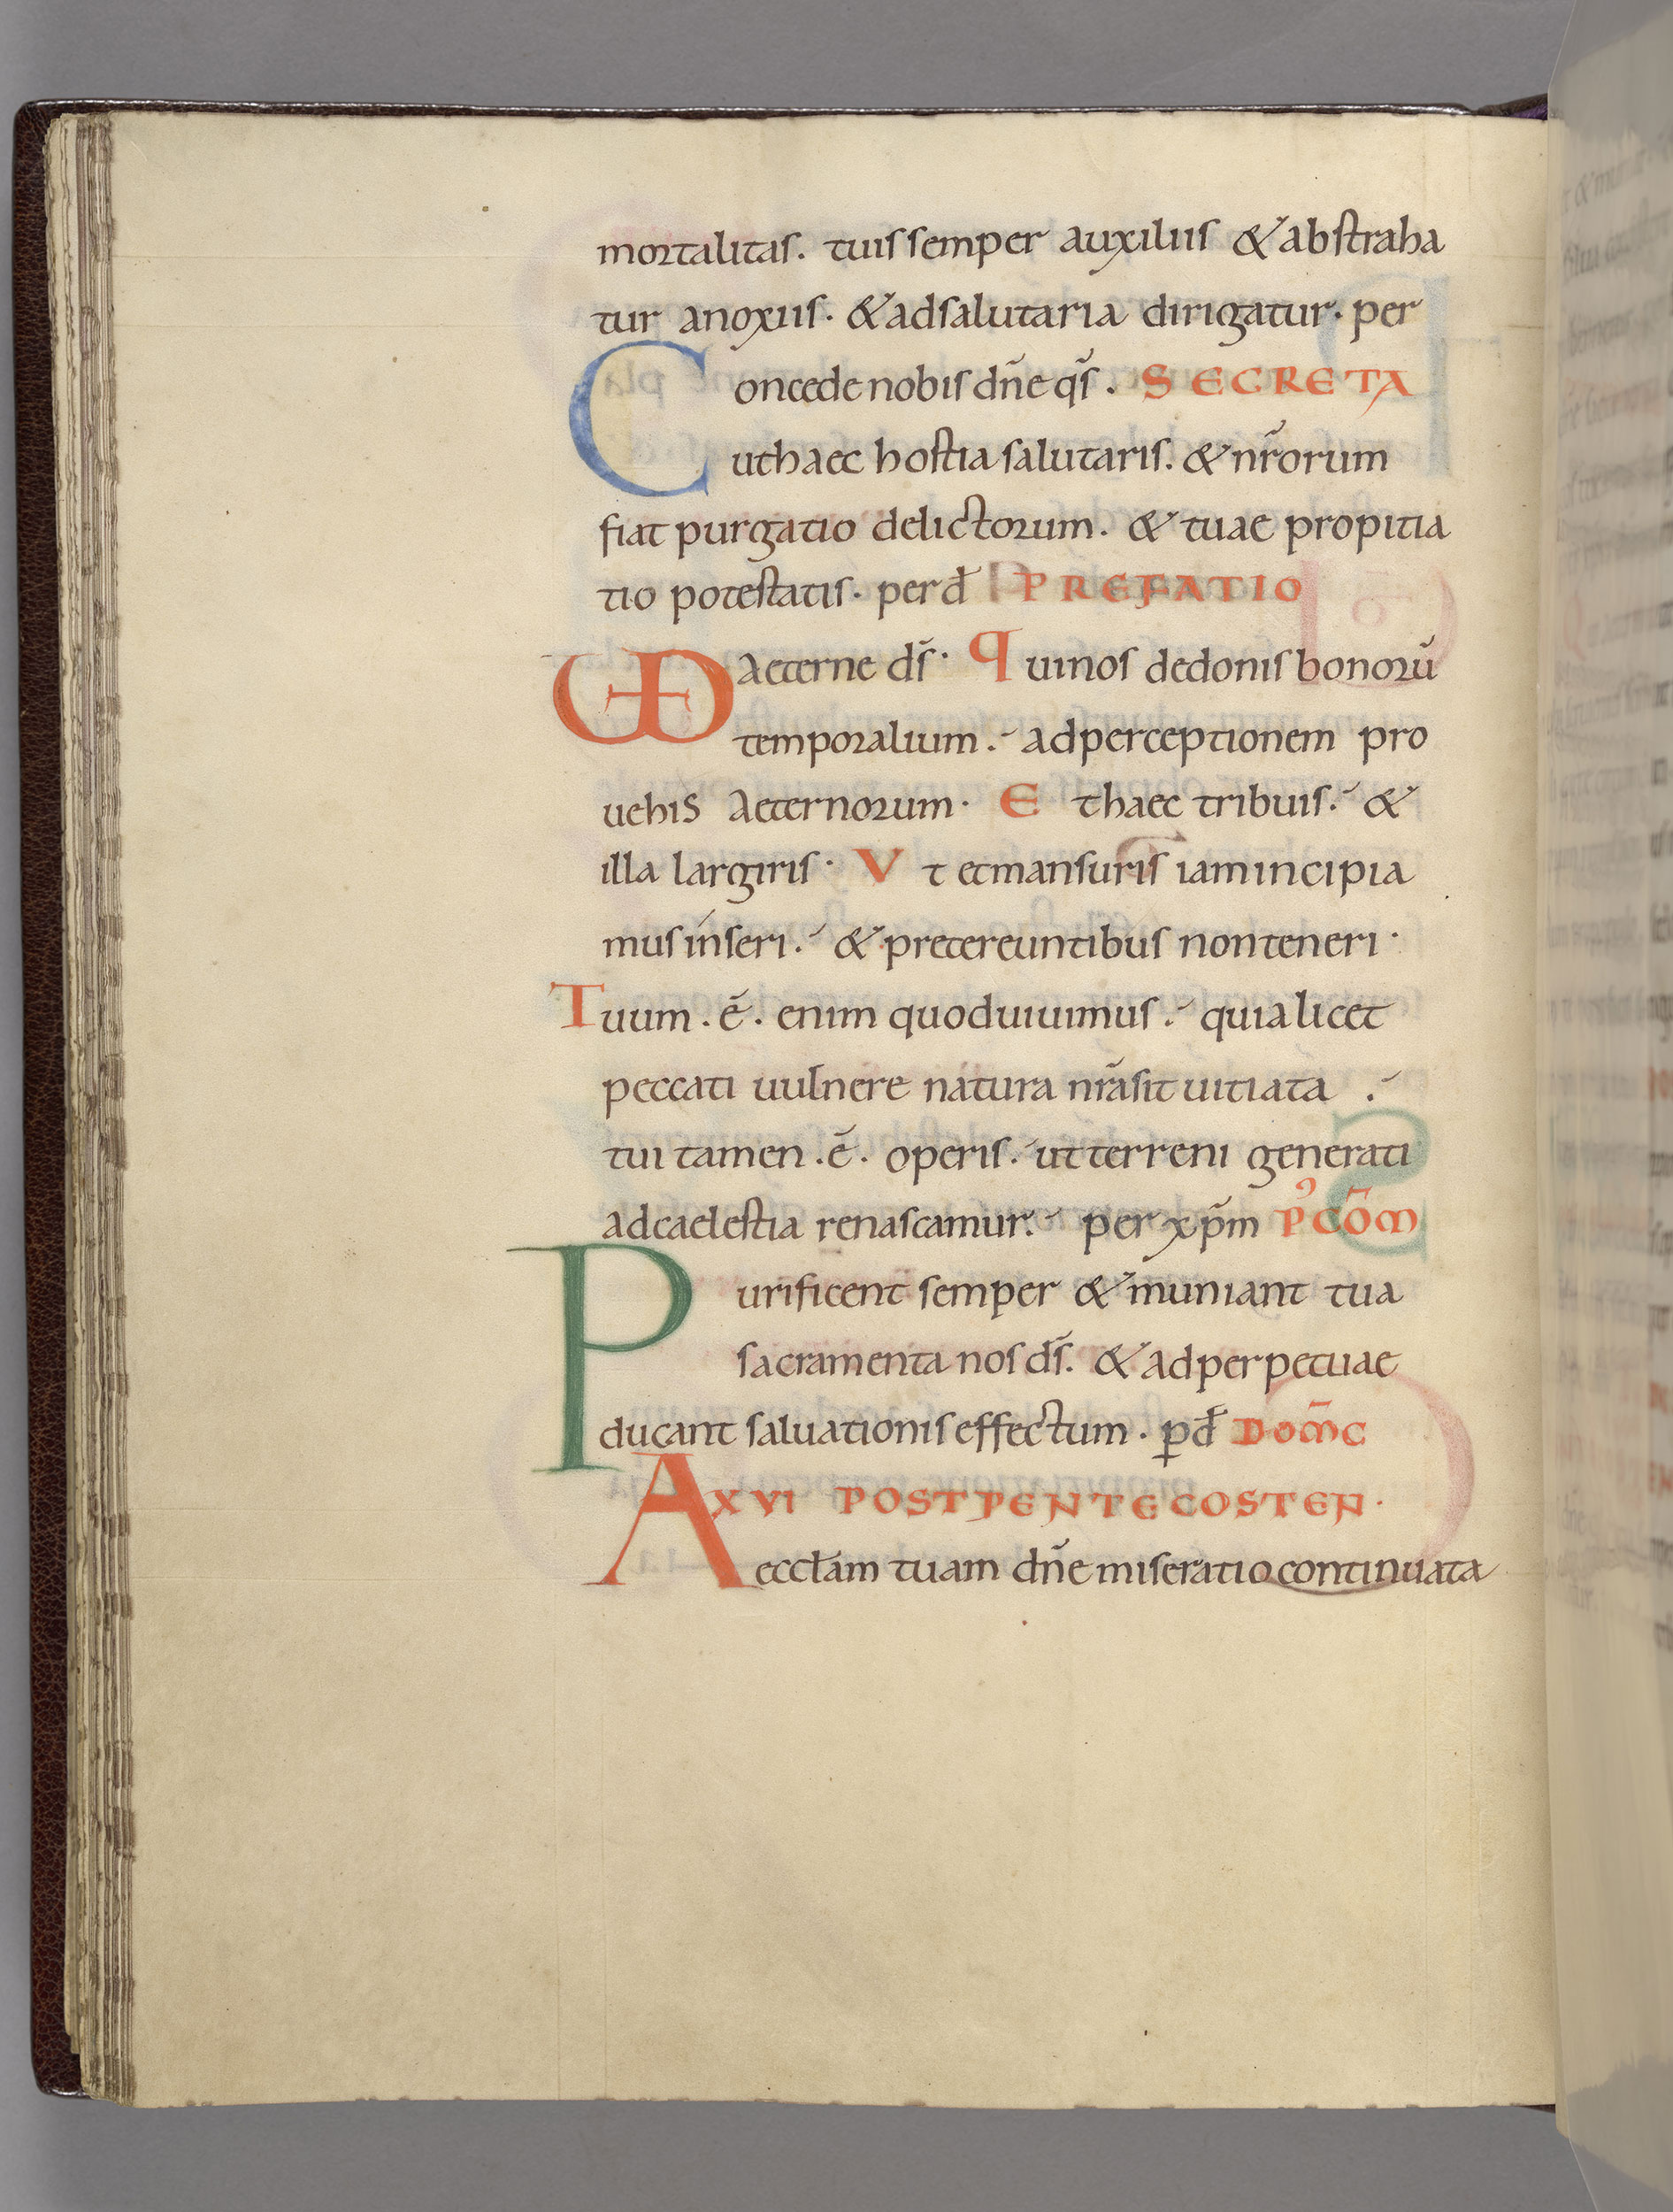 mortalitas. tuis semper auxiliis & abstraha
tur anoxiis. & adsalutaria dirigatur. per
Concede nobis dñe qs̃. SECRETA
uthaec hostia salutaris. & nr̃orum
fiat purgatio delictorum. & tuae propitia
tio potestatis. per đ PREFATIO
VD aeterne ds̃. Qui nos dedonis bonorũ
temporalium. adperceptionem pro
uehis aeternorum. Et haec tribuis. &
illa largiris. Vt et mansuris iam incipia
mus inseri. & pretereuntibus non teneri.
Tuum .ẽ. enim quod uiuimus. quia licet
peccati uulnere natura nr̃a sit uitiata .
tui tamen .ẽ. operis. ut terreni generati
adcaelestia renascamur. per xp̃m P'CŌM
Purificent semper & muniant tua
sacramenta nos ds̃. & ad perpetuae
ducant saluationis effectum. ꝑ đ DOM̃C
XVI POST PENTECOSTEN.
Aeccłam tuam dñe miseratio continuata